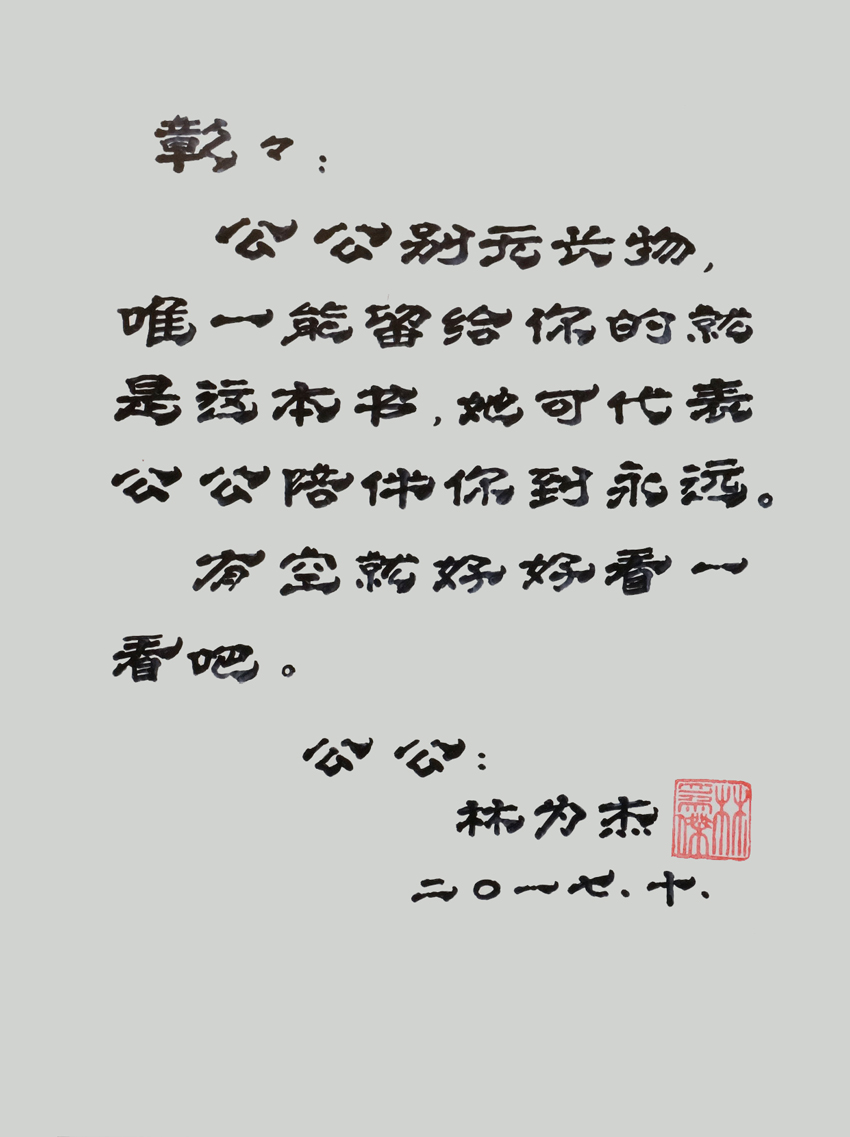 彰々：
公公别无长物，
唯一能留给你的就
是这本书，她可代表
公公陪伴你到永远。
有空就好好看一
看吧。
公公：
林为杰
林為傑
二〇一七.十.